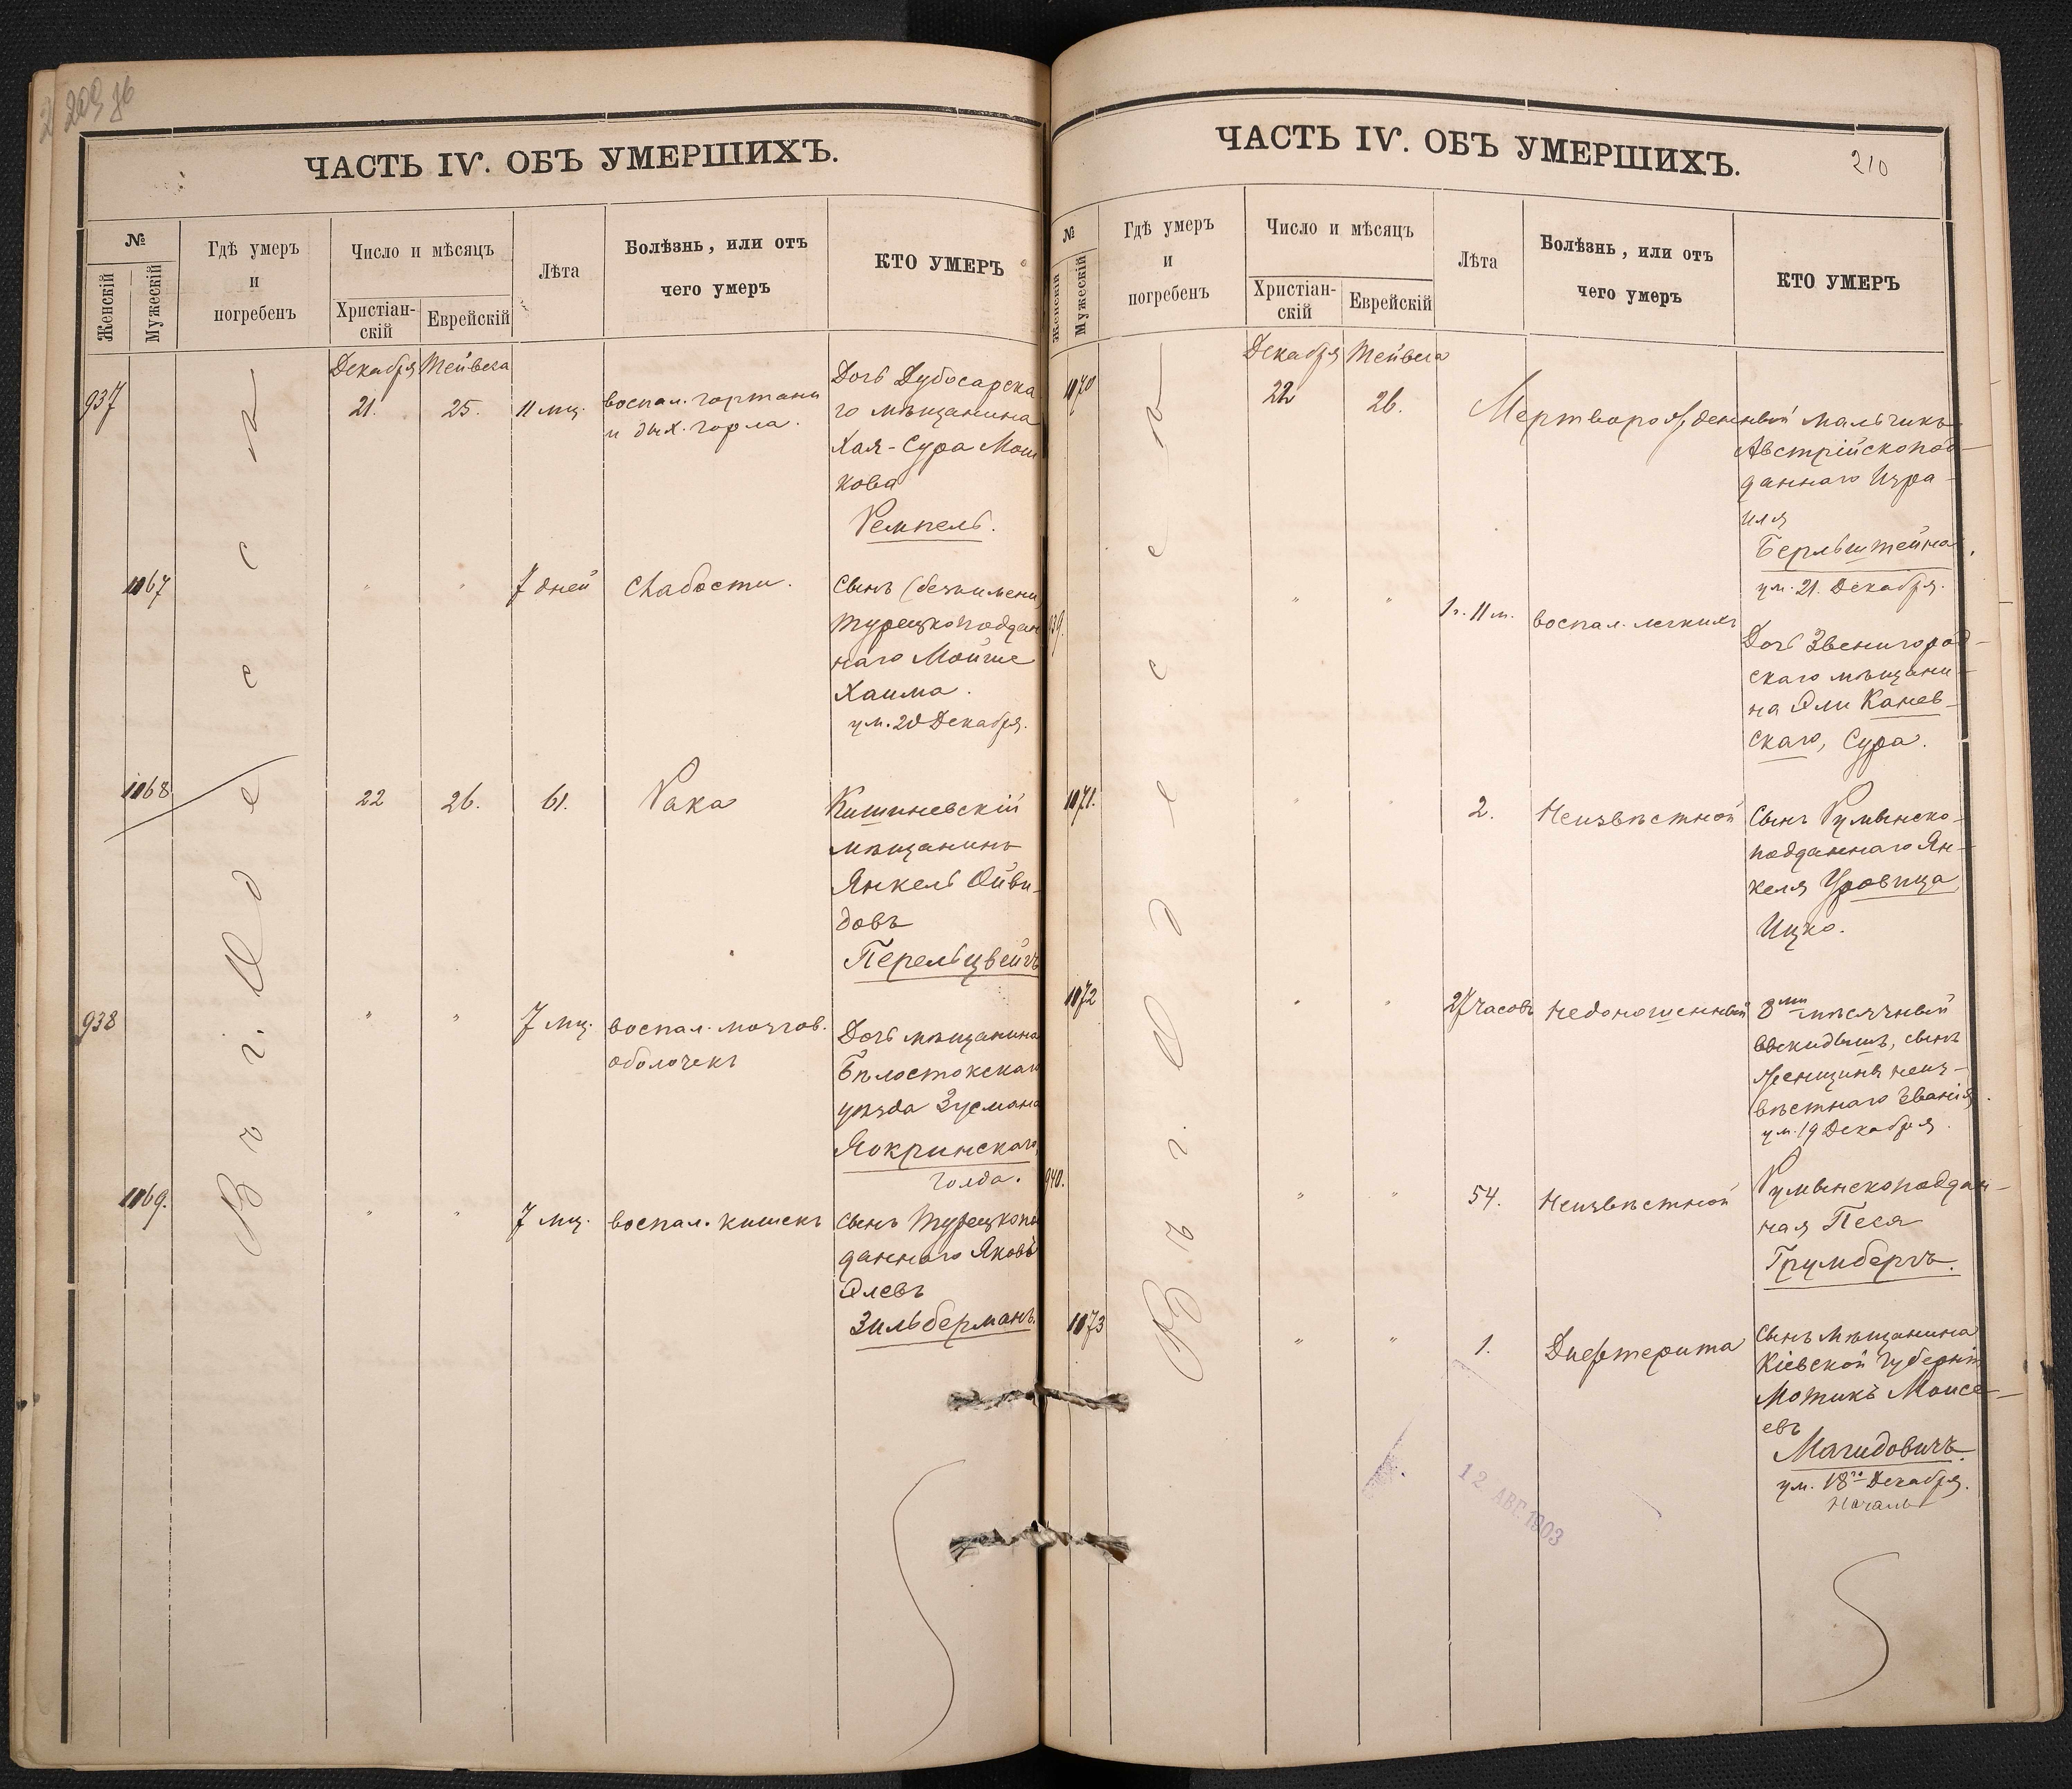 209
ЧАСТЬ IV. ОБЪ УМЕРШИХЪ.
№
Женскій
Мужескій
Гдѣ умеръ
и
погребенъ
Число и мѣсяцъ
Христіан-
скій
Еврейскій
Лѣта
Болѣзнь, или отъ
чего умеръ
КТО УМЕРЪ
Въ г. Одессѣ
Декабря Тейвеса
937 21. 25. 11 мц. воспал. гортани
и дых. горла.
Дочь Дубосарска
го мѣщанина
Хая-Сура Мош
кова
Ремпель.
1067 " " 7 дней Слабости. Сынъ (безъимени)
Турецкоподдан
наго Мойше
Хаима.
ум. 20 Декабря.
1068 22 26. 61. Рака Кишиневскій
мѣщанинъ
Янкель Ойви-
довъ
Перельцвейгъ
938 " " 7 мц. воспал. мозгов.
оболочекъ
Дочь мѣщанина
Бѣлостокскаго
уѣзда Зусмана
Яокринскаго,
Голда.
1069. " " 7 мц. воспал. кишекъ Сынъ Турецкопо
даннаго Яковъ
Элевъ
Зильберманъ.
ЧАСТЬ IV. ОБЪ УМЕРШИХЪ.
210
№
Женскій
Мужескій
Гдѣ умеръ
и
погребенъ
Число и мѣсяцъ
Христіан-
скій
Еврейскій
Лѣта
Болѣзнь, или отъ
чего умеръ
КТО УМЕРЪ
Въ г. Одессѣ
Декабря Тейвеса
1070 22 26. Мертворожденный мальчикъ
Австрійскопод-
даннаго Изра-
иля
Берльштейна.
ум. 21. Декабря.
939. " " 1 г. 11 м. воспал. легкихъ
Дочь Звенигород-
скаго мѣщани-
на Эли Канев-
скаго, Сура.
1071. " " 2. Неизвѣстной Сынъ Румынско-
подданнаго Ян-
келя Уровица
Ицко.
1072 " " 27 часовъ недоношенный 8ми мѣсячный
выкидышъ, сынъ
женщины неиз-
вѣстнаго званія.
ум. 19 Декабря.
940. " " 54. Неизвѣстной Румынскоподдан-
ная Песя
Грумбергъ.
1073 " " 1. Дифтерита Сынъ мѣщанина
Кіевской губерніи
Мотикъ Моисе-
евъ
Магидовичъ.
ум. 18го Декабря.
12 АВГ. 1903